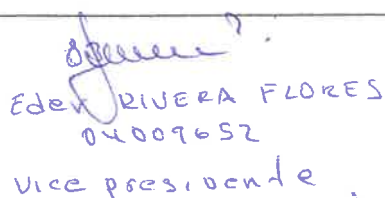 Eder RIVERA FLORES
04009652
Vice presidente